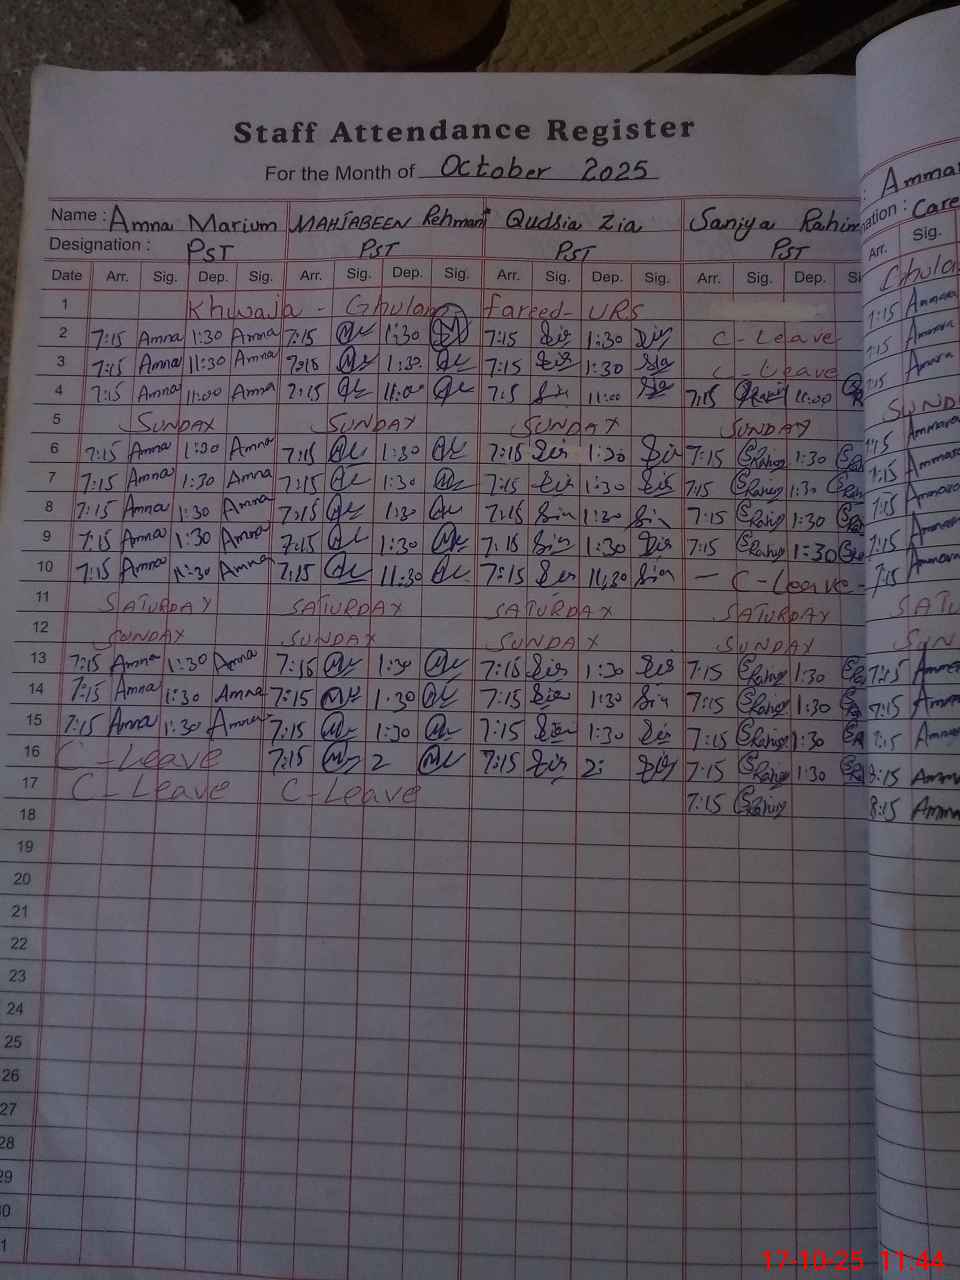 Staff Attendance Register
For the Month of October 2025
Name : Amna Marium MAHJABEEN Rehmani Qudsia Zia Saniya Rahim
Designation : PST PST PST PST
Date Arr. Sig. Dep. Sig. Arr. Sig. Dep. Sig. Arr. Sig. Dep. Sig. Arr. Sig. Dep.
1 Khwaja - Ghulam fareed - URS
2 7:15 Amna 1:30 Amna 7:15 1:30 7:15 1:30 C - Leave
3 7:15 Amna 11:30 Amna 7:15 1:30 7:15 1:30 C - Leave
4 7:15 Amna 11:00 Amna 7:15 11:00 7:15 11:00 7:15 11:00
5 SUNDAY SUNDAY SUNDAY SUNDAY
6 7:15 Amna 1:30 Amna 7:15 1:30 7:15 1:30 7:15 SRahim 1:30
7 7:15 Amna 1:30 Amna 7:15 1:30 7:15 1:30 7:15 SRahim 1:30
8 7:15 Amna 1:30 Amna 7:15 1:30 7:15 1:30 7:15 SRahim 1:30
9 7:15 Amna 1:30 Amna 7:15 1:30 7:15 1:30 7:15 SRahim 1:30
10 7:15 Amna 11:30 Amna 7:15 11:30 7:15 11:30 - C - Leave -
11 SATURDAY SATURDAY SATURDAY SATURDAY
12 SUNDAY SUNDAY SUNDAY SUNDAY
13 7:15 Amna 1:30 Amna 7:15 1:30 7:15 1:30 7:15 SRahim 1:30
14 7:15 Amna 1:30 Amna 7:15 1:30 7:15 1:30 7:15 SRahim 1:30
15 7:15 Amna 1:30 Amna 7:15 1:30 7:15 1:30 7:15 SRahim 1:30
16 C - Leave 7:15 2 7:15 2: 7:15 SRahim 1:30
17 C - Leave C - Leave 7:15 SRahim
18
19
20
21
22
23
24
25
26
27
28
29
Arr. Sig.
7:15
7:15
7:15
7:15
7:15
7:15
7:15
7:15
8:15
8:15
17-10-25 11:44